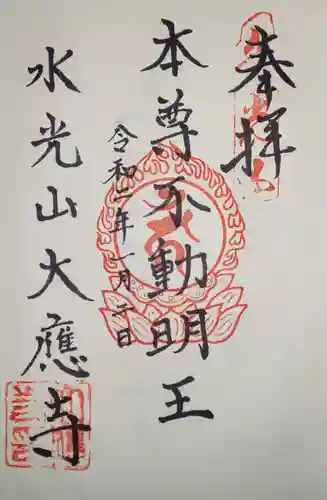 奉拝
本尊不動明王
令和二年一月二日
水光山大應寺